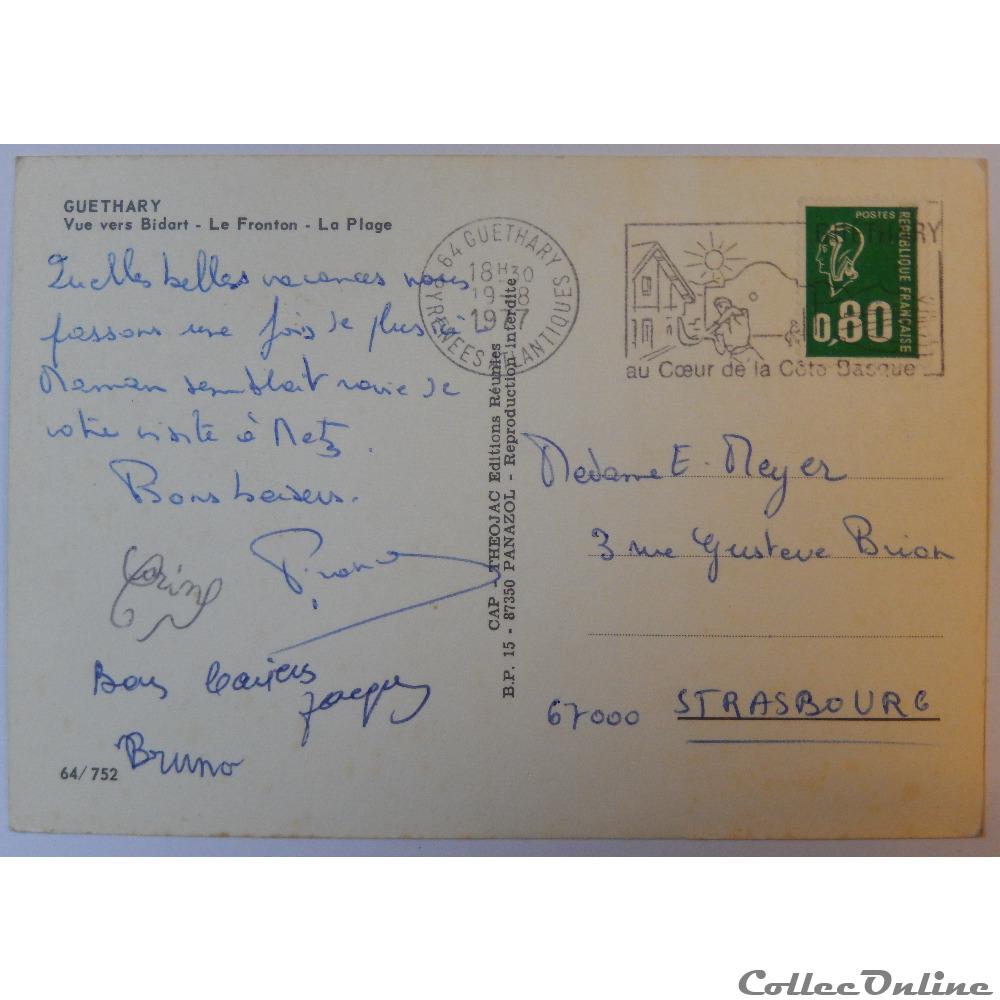 GUETHARY
Vue vers Bidart - Le Fronton - La Plage
Quelles belles vacances nous
passons une fois de plus ici
Maman semblait ravie de
votre visite à Metz.
Bons baisers.
Karine
Bons baisers
Jacques
Bruno
64/752
CAP - THEOJAC Editions Réunies
B.P. 15 - 87350 PANAZOL - Reproduction interdite
64 GUETHARY
PYRENEES ATLANTIQUES
18H30
19-8
1977
GUETHARY
au Cœur de la Côte Basque
POSTES
REPUBLIQUE FRANÇAISE
0,80
Madame E. Meyer
3 rue Gustave Brion
67000 STRASBOURG
CollecOnline